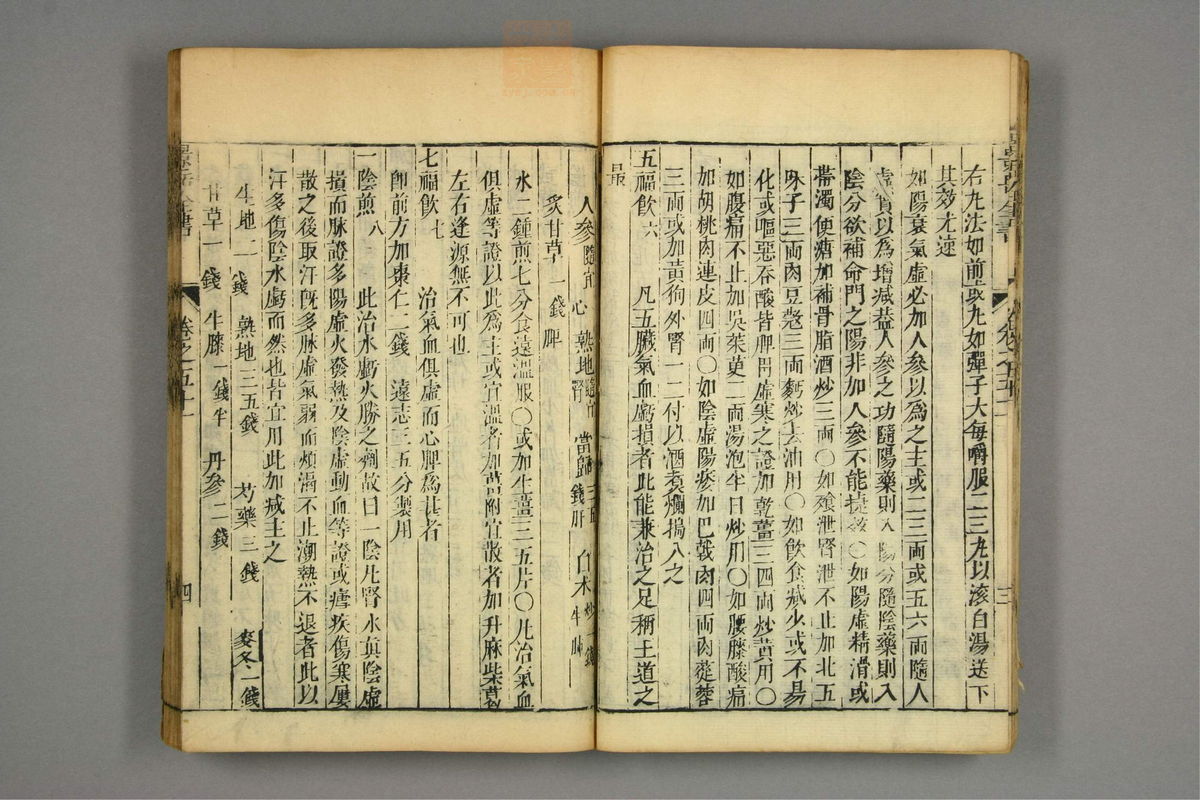 右丸法如前或丸如彈子大每嚼服二三丸以滾白湯送下
其效尤速
如陽衰氣虛必加人參以為之主或二三兩或五六兩隨人
虛實以為增減葢人參之功隨陽藥則入陽分隨陰藥則入
陰分欲補命門之陽非加人參不能捷效〇如陽虛精滑或
帶濁便溏加補骨脂酒炒三兩〇如飱泄腎泄不止加北五
味子三兩肉豆蔻三兩麪炒去油用〇如飲食減少或不易
化或嘔惡吞酸皆脾胃虛寒之證加乾薑三四兩炒黄用〇
如腹痛不止加吳茱萸二兩湯泡半日炒用〇如腰膝酸痛
加胡桃肉連皮四兩〇如陰虛陽痿加巴戟肉四兩肉蓯蓉
三兩或加黃狗外腎一二付以酒煮爛搗入之
五福飲 六 凡五臟氣血虧損者此能兼治之足稱王道之
最
人參隨宜 心 熟地隨宜 腎 當歸二三錢 肝 白朮炒一錢半 肺
炙甘草一錢 脾
水二鍾煎七分食遠溫服〇或加生薑三五片〇凡治氣血
俱虛等證以此爲主或宜溫者加薑附宜散者加升麻柴葛
左右逢源無不可也
七福飲 七 治氣血俱虛而心脾爲甚者
即前方加棗仁二錢 遠志三五分製用
一陰煎 八 此治水虧火勝之劑故曰一陰凡腎水真陰虛
損而脉證多陽虛火發熱及陰虛動血等證或瘧疾傷寒屢
散之後取汗旣多脉虛氣弱而煩渴不止潮熱不退者此以
汗多傷陰水虧而然也皆宜用此加減主之
生地二錢 熟地三五錢 芍藥二錢 麥冬二錢
甘草一錢 牛膝一錢半 丹參二錢
卷之五十一
四